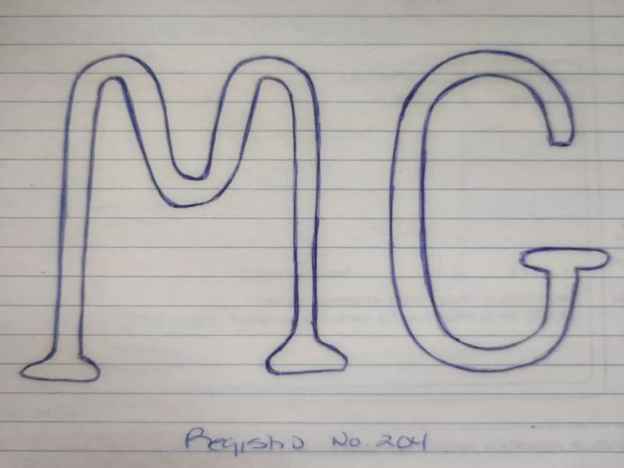 MG
Registro No. 204